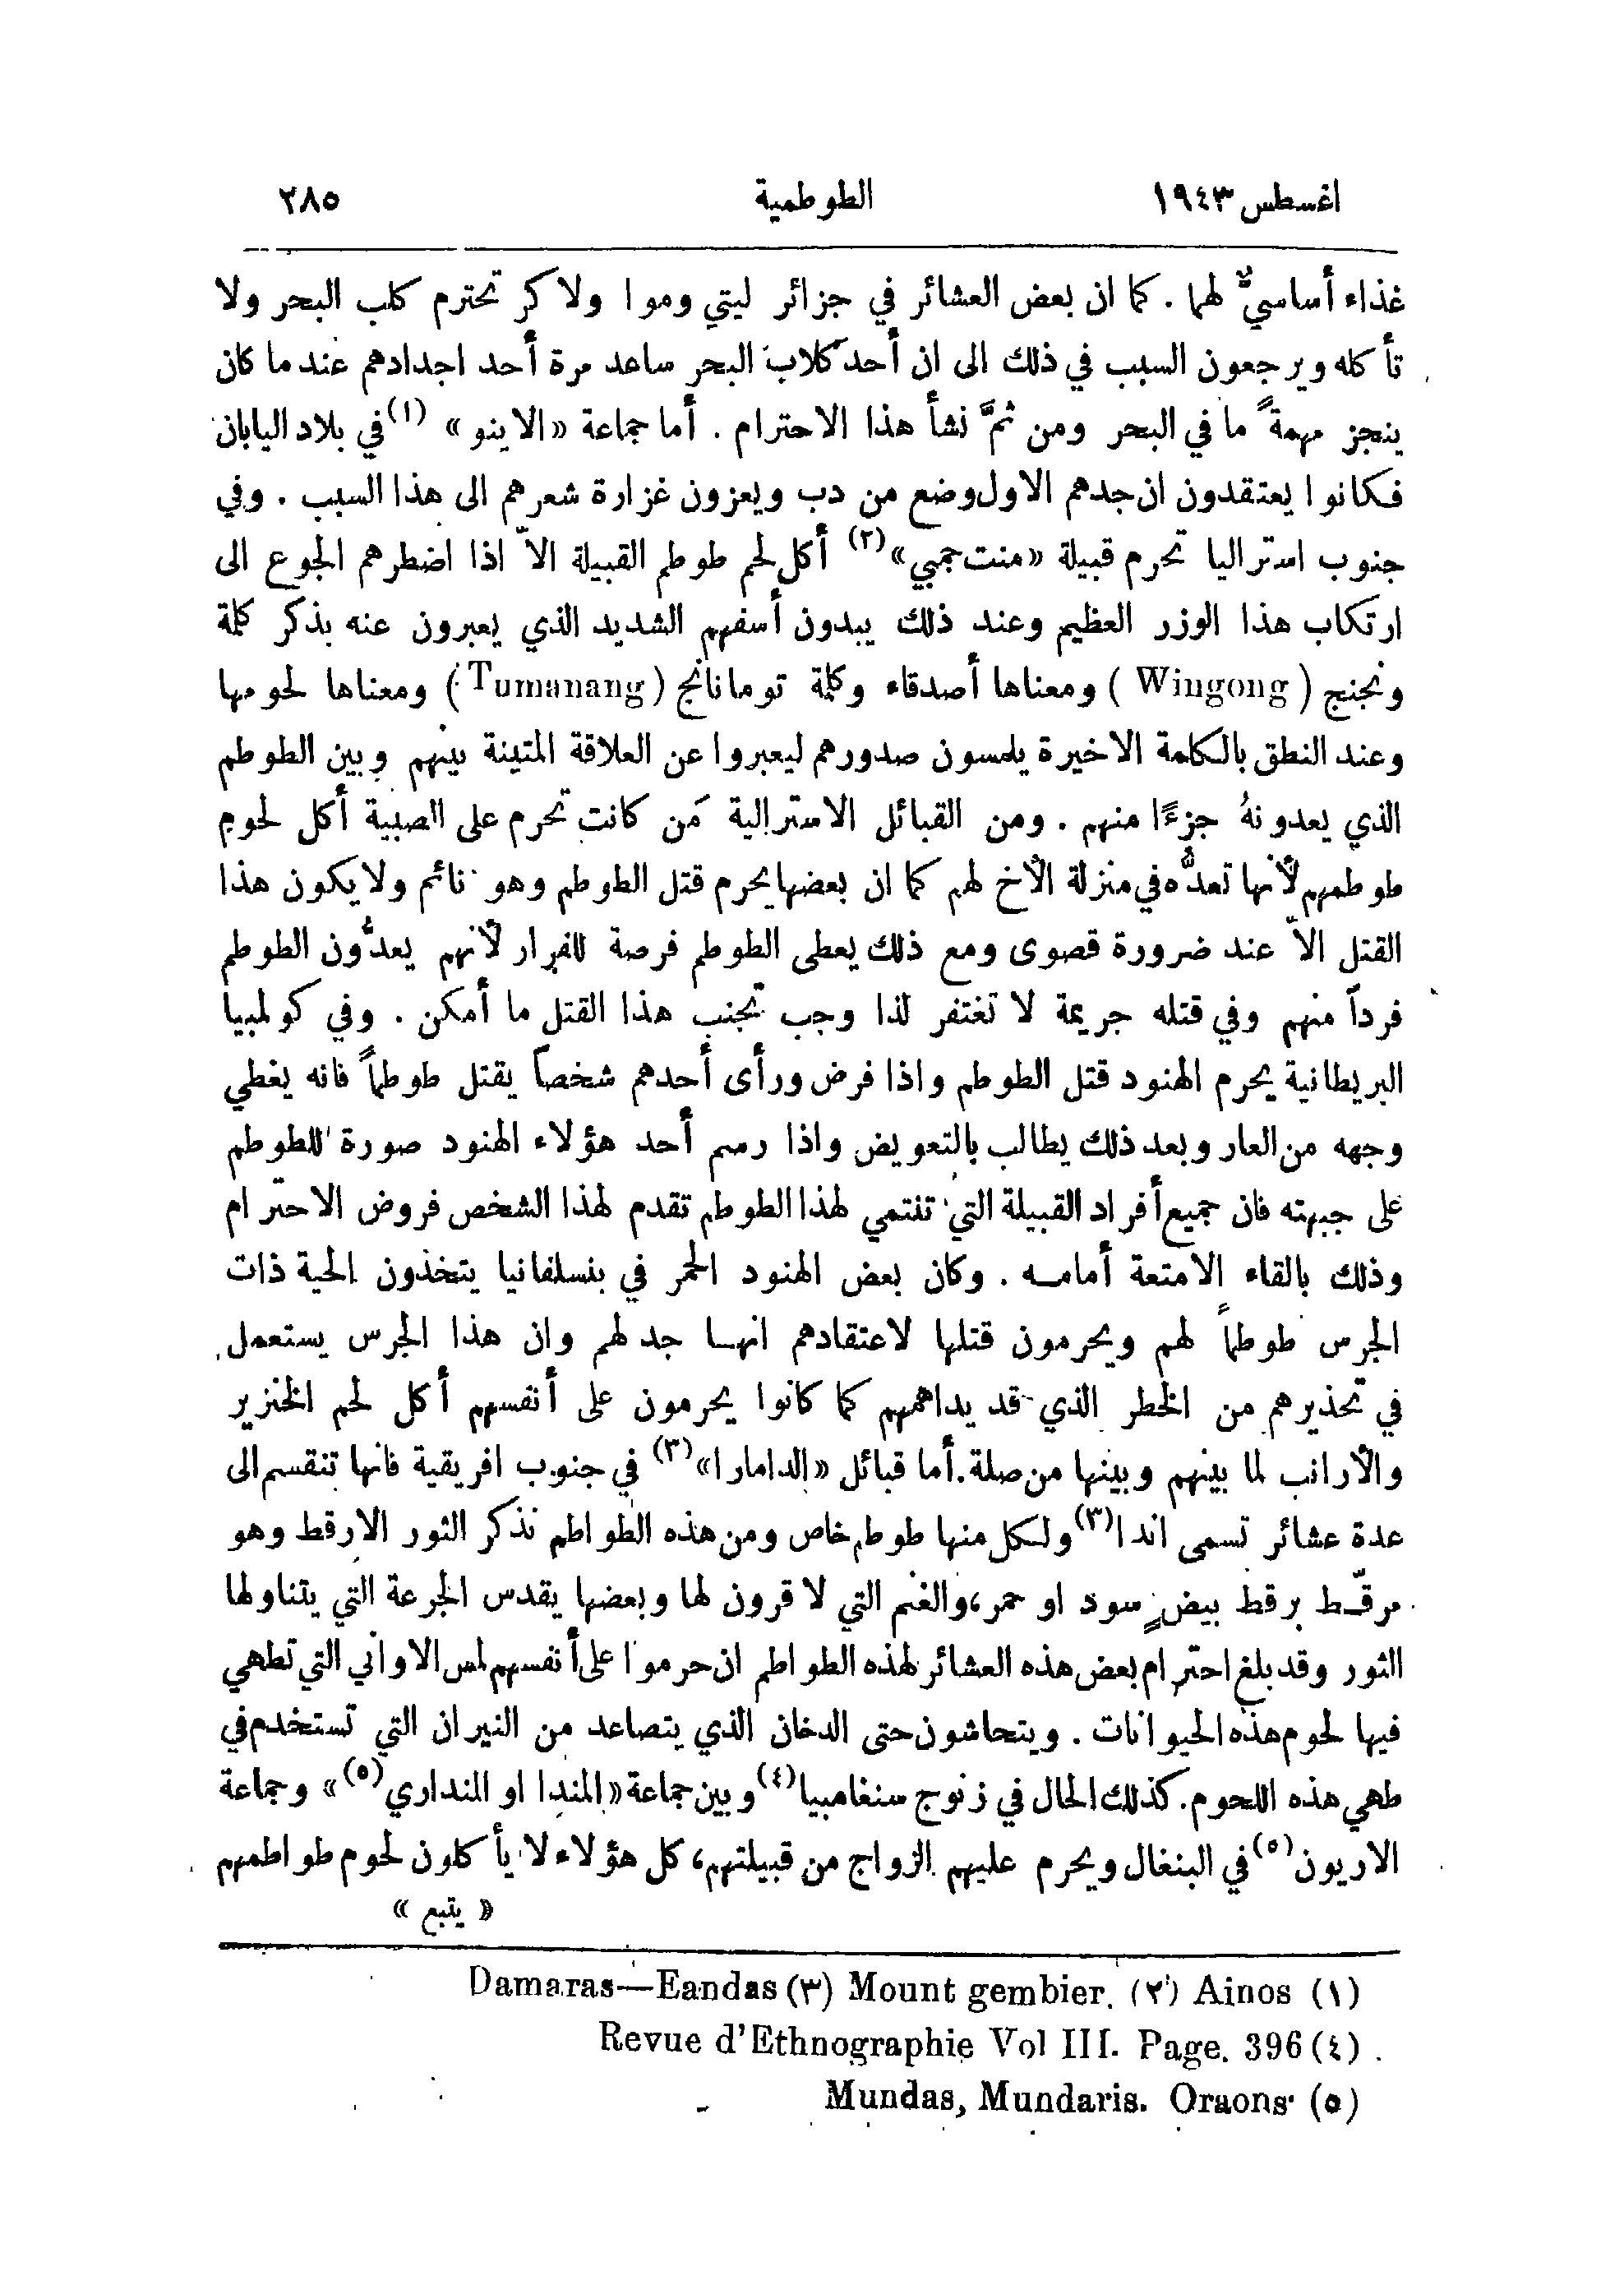 اغسطس ١٩٤٣ الطوطمية ٢٨٥
غذاء أساسيٌّ لهما . كما ان بعض العشائر في جزائر ليتي وموا ولاكر تحترم كلب البحر ولا
تأكله ويرجعون السبب في ذلك الى ان أحد كلاب البحر ساعد مرة أحد اجدادهم عند ما كان
ينجز مهمةً ما في البحر ومن ثمَّ نشأ هذا الاحترام . أما جماعة «الاينو» (١) في بلاد اليابان
فكانوا يعتقدون ان جدهم الاول وضع من دب ويعزون غزارة شعرهم الى هذا السبب . وفي
جنوب استراليا تحرم قبيلة «منت جمبي» (٢) أكل لحم طوطم القبيلة الاّ اذا اضطرهم الجوع الى
ارتكاب هذا الوزر العظيم وعند ذلك يبدون أسفهم الشديد الذي يعبرون عنه بذكر كلمة
ونجنج ( Wingong ) ومعناها أصدقاء وكلمة تومانانج ( Tumanang ) ومعناها لحومها
وعند النطق بالكلمة الاخيرة يلمسون صدورهم ليعبروا عن العلاقة المتينة بينهم وبين الطوطم
الذي يعدونهُ جزءًا منهم . ومن القبائل الاسترالية مَن كانت تحرم على الصبية أكل لحوم
طوطمهم لأنها تعدُّه في منزلة الأخ لهم كما ان بعضها يحرم قتل الطوطم وهو نائم ولا يكون هذا
القتل الاّ عند ضرورة قصوى ومع ذلك يعطى الطوطم فرصة للفرار لأنهم يعدُّون الطوطم
فرداً منهم وفي قتله جريمة لا تغتفر لذا وجب تجنب هذا القتل ما أمكن . وفي كولمبيا
البريطانية يحرم الهنود قتل الطوطم واذا فرض ورأى أحدهم شخصاً يقتل طوطماً فانه يغطي
وجهه من العار وبعد ذلك يطالب بالتعويض واذا رسم أحد هؤلاء الهنود صورة للطوطم
على جبهته فان جميع أفراد القبيلة التي تنتمي لهذا الطوطم تقدم لهذا الشخص فروض الاحترام
وذلك بالقاء الامتعة أمامه . وكان بعض الهنود الحمر في بنسلفانيا يتخذون الحية ذات
الجرس طوطماً لهم ويحرمون قتلها لاعتقادهم انها جد لهم وان هذا الجرس يستعمل
في تحذيرهم من الخطر الذي قد يداهمهم كما كانوا يحرمون على أنفسهم أكل لحم الخنزير
والأرانب لما بينهم وبينها من صلة. أما قبائل «الدامارا» (٣) في جنوب افريقية فانها تنقسم الى
عدة عشائر تسمى اندا (٣) ولكل منها طوطم خاص ومن هذه الطواطم نذكر الثور الارقط وهو
مرقّط برقط بيض سود او حمر، والغنم التي لا قرون لها وبعضها يقدس الجرعة التي يتناولها
الثور وقد بلغ احترام بعض هذه العشائر لهذه الطواطم ان حرموا على أنفسهم لمس الاواني التي تطهي
فيها لحوم هذه الحيوانات . ويتحاشون حتى الدخان الذي يتصاعد من النيران التي تستخدم في
طهي هذه اللحوم. كذلك الحال في زنوج سنغامبيا (٤) وبين جماعة «المندا او المنداري (٥)» وجماعة
الاريون (٥) في البنغال ويحرم عليهم الزواج من قبيلتهم، كل هؤلاء لا يأكلون لحوم طواطمهم
« يتبع »
Damaras—Eandas (٣) Mount gembier. (٢) Ainos (١)
Revue d'Ethnographie Vol III. Page. 396 (٤)
Mundas, Mundaris. Oraons (٥)